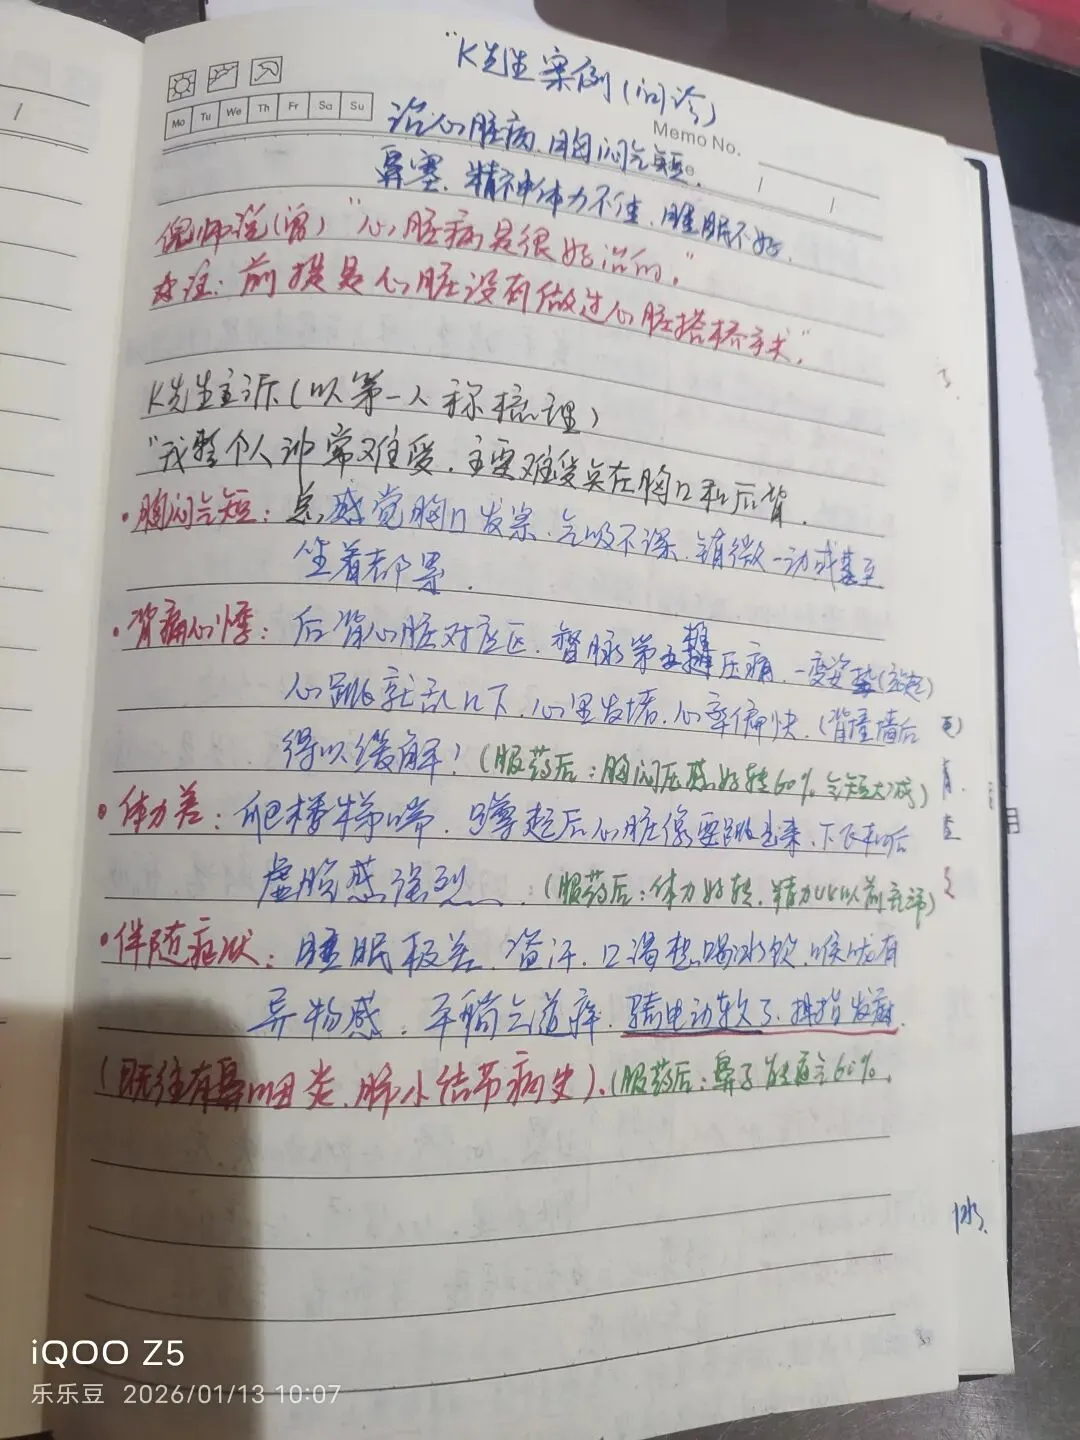 "K先生案例(问诊)
Mo Tu We Th Fr Sa Su
Memo No.
治心脏病、胸闷气短、
鼻塞、精神体力不佳、睡眠不好、
倪师说(曾)"心脏病是很好治的。"
备注:前提是心脏没有做过心脏搭桥手术"。
K先生主诉(以第一人称梳理)
"我整个人非常难受、主要难受点在胸口和后背、
•胸闷气短:总感觉胸口发紧、气吸不深、稍微一动或甚至
坐着都累、
•背痛心悸:后背心脏对应区、督脉第五椎压痛、一变姿势(站起)
心跳就乱几下、心里发堵、心率偏快、(背撞墙后
得以缓解!(服药后:胸闷压感好转60%气短大减)
•体力差:爬楼梯喘、蹲起后心脏像要跳出来、下飞机后
虚脱感强烈、(服药后:体力好转、精力比以前充沛)
•伴随症状:睡眠极差、盗汗、口渴想喝冰饮、喉咙有
异物感、平躺气道痒、骑电动车久了、拇指发麻、
(既往有鼻咽炎、肺小结节病史)、(服药后:鼻子通气60%、
iQOO Z5
乐乐豆 2026/01/13 10:07